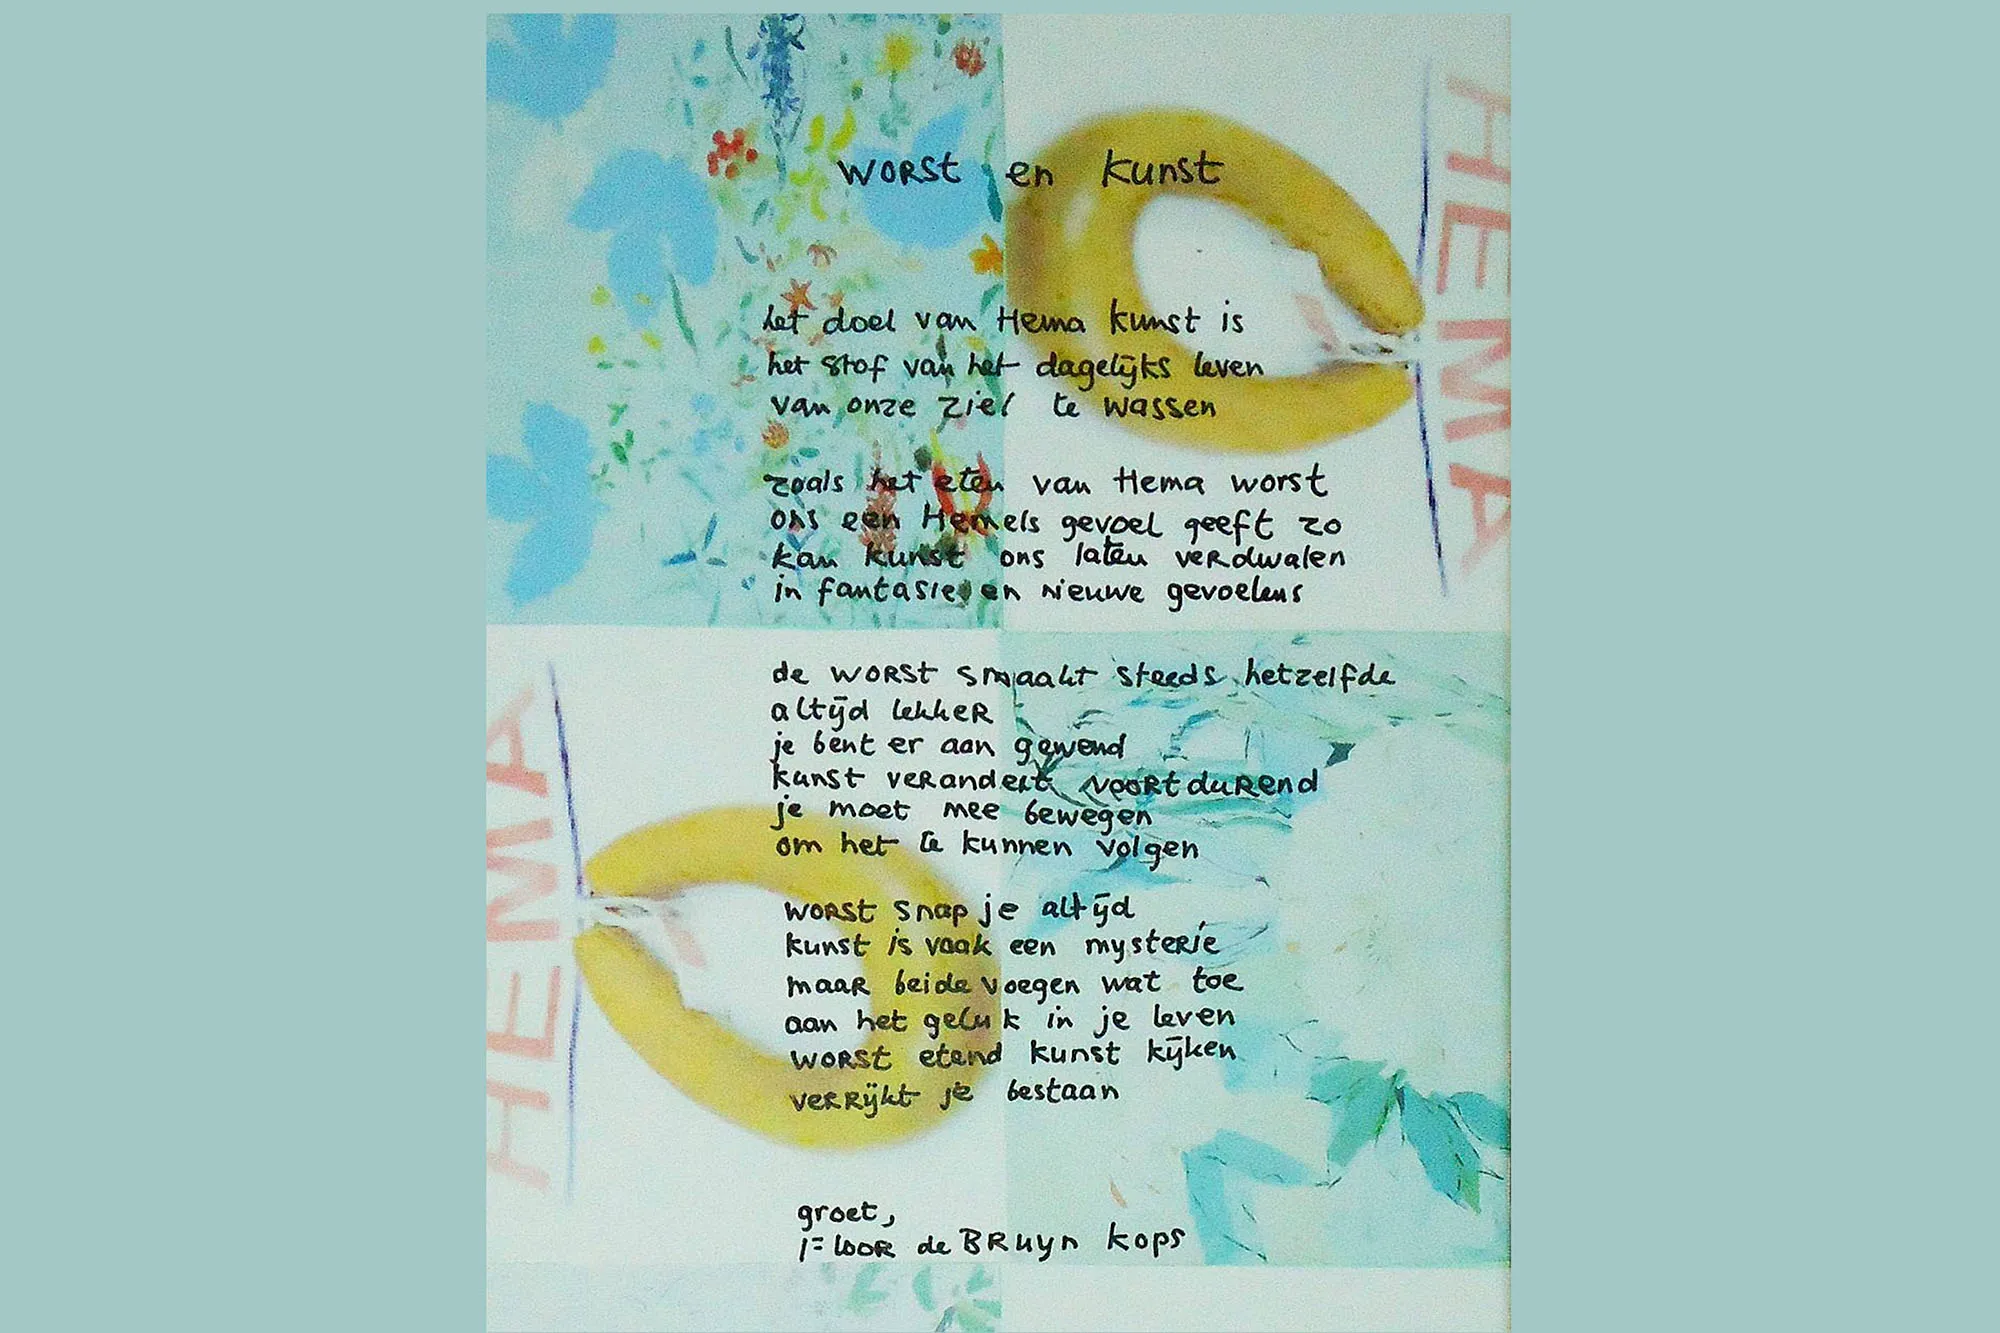 worst en kunst
het doel van Hema kunst is
het stof van het dagelijks leven
van onze ziel te wassen
zoals het eten van Hema worst
ons een Hemels gevoel geeft zo
kan kunst ons laten verdwalen
in fantasie en nieuwe gevoelens
de worst smaakt steeds hetzelfde
altijd lekker
je bent er aan gewend
kunst verandert voortdurend
je moet mee bewegen
om het te kunnen volgen
worst snap je altijd
kunst is vaak een mysterie
maar beide voegen wat toe
aan het geluk in je leven
worst etend kunst kijken
verrijkt je bestaan
groet,
Floor de Bruyn Kops
HEMA
HEMA